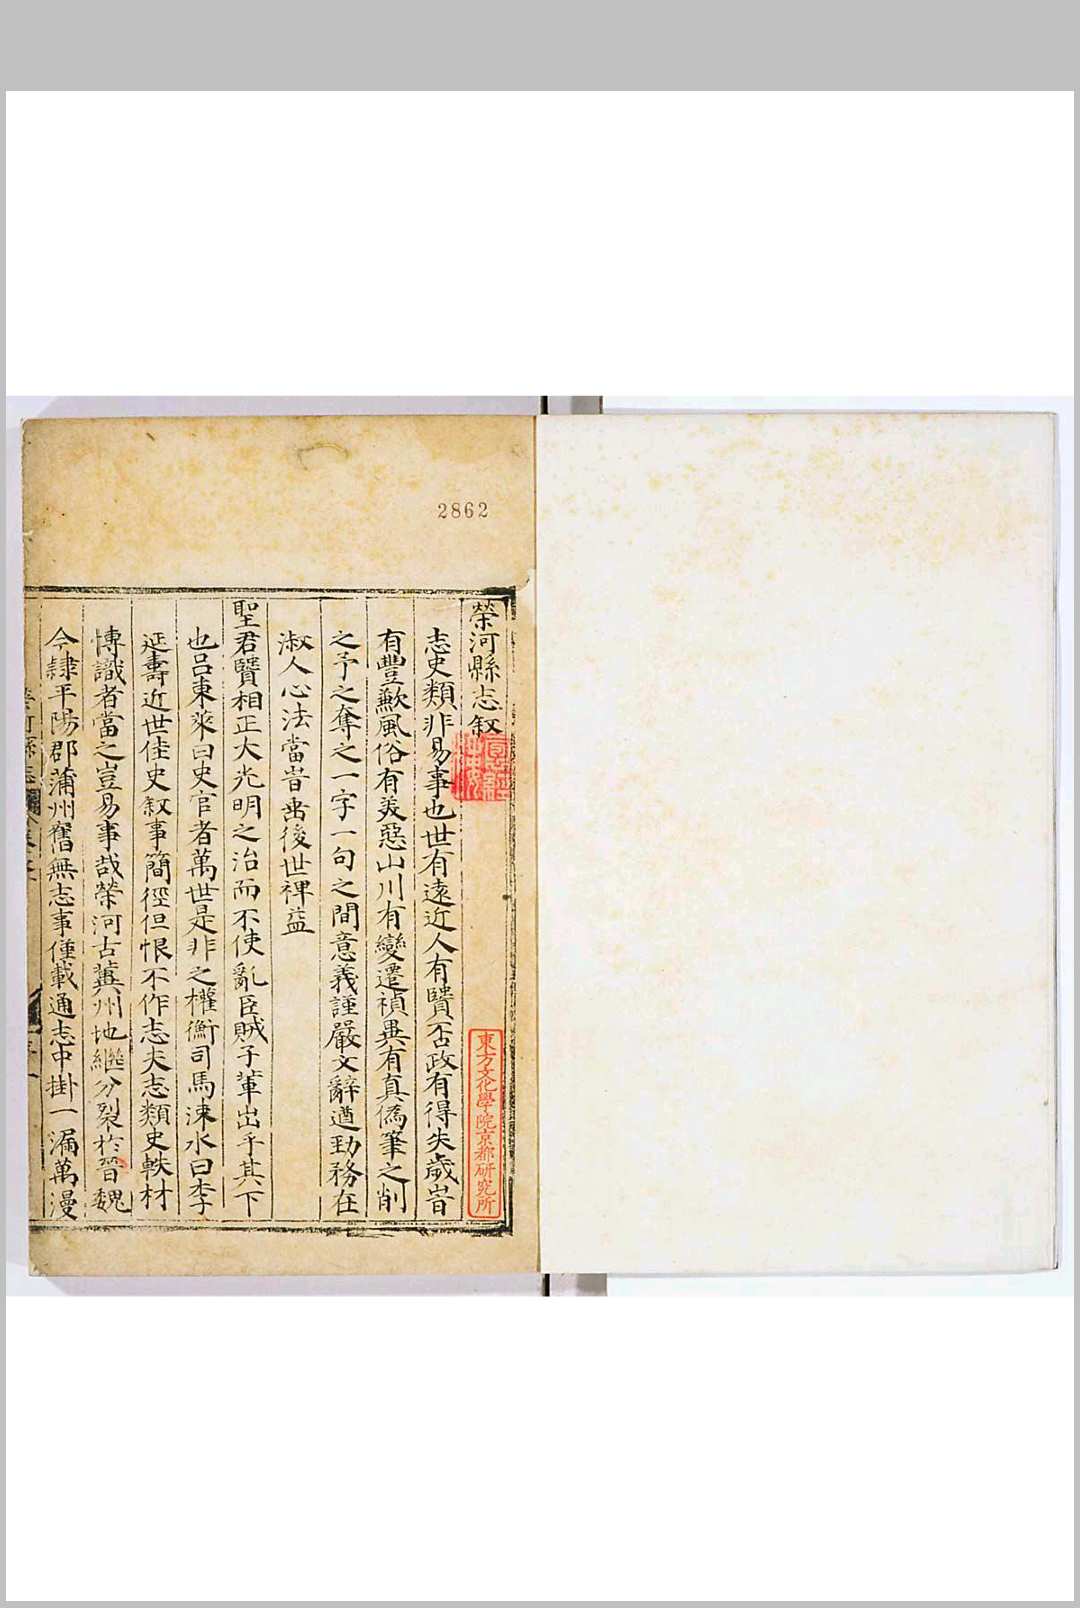 2862
榮河縣志叙
志史類非易事也世有遠近人有賢否政有得失歲旹
有豐歉風俗有美惡山川有變遷禎異有真偽筆之削
之予之奪之一字一句之間意義謹嚴文辭遒勁務在
淑人心法當旹垂後世裨益
聖君賢相正大光明之治而不使亂臣賊子輩出乎其下
也呂東萊曰史官者萬世是非之權衡司馬涑水曰李
延壽近世佳史叙事簡徑但恨不作志夫志類史軼材
博識者當之豈易事哉榮河古冀州地繼分裂於晉魏
今隸平陽郡蒲州舊無志事僅載通志中掛一漏萬漫
東方文化學院京都研究所